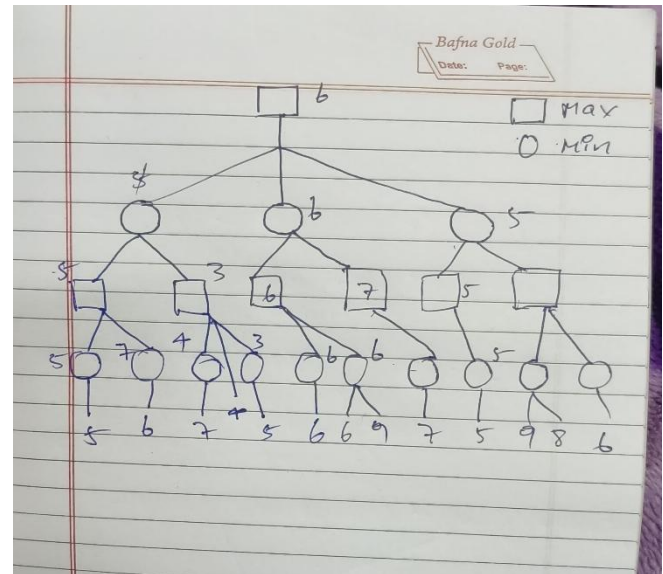 Bafna Gold
Date: Page:
6
Max
Min
5
6
5
5
3
6
7
5
5
7
4
3
6
6
5
5 6 7 4 5 6 6 9 7 5 9 8 6